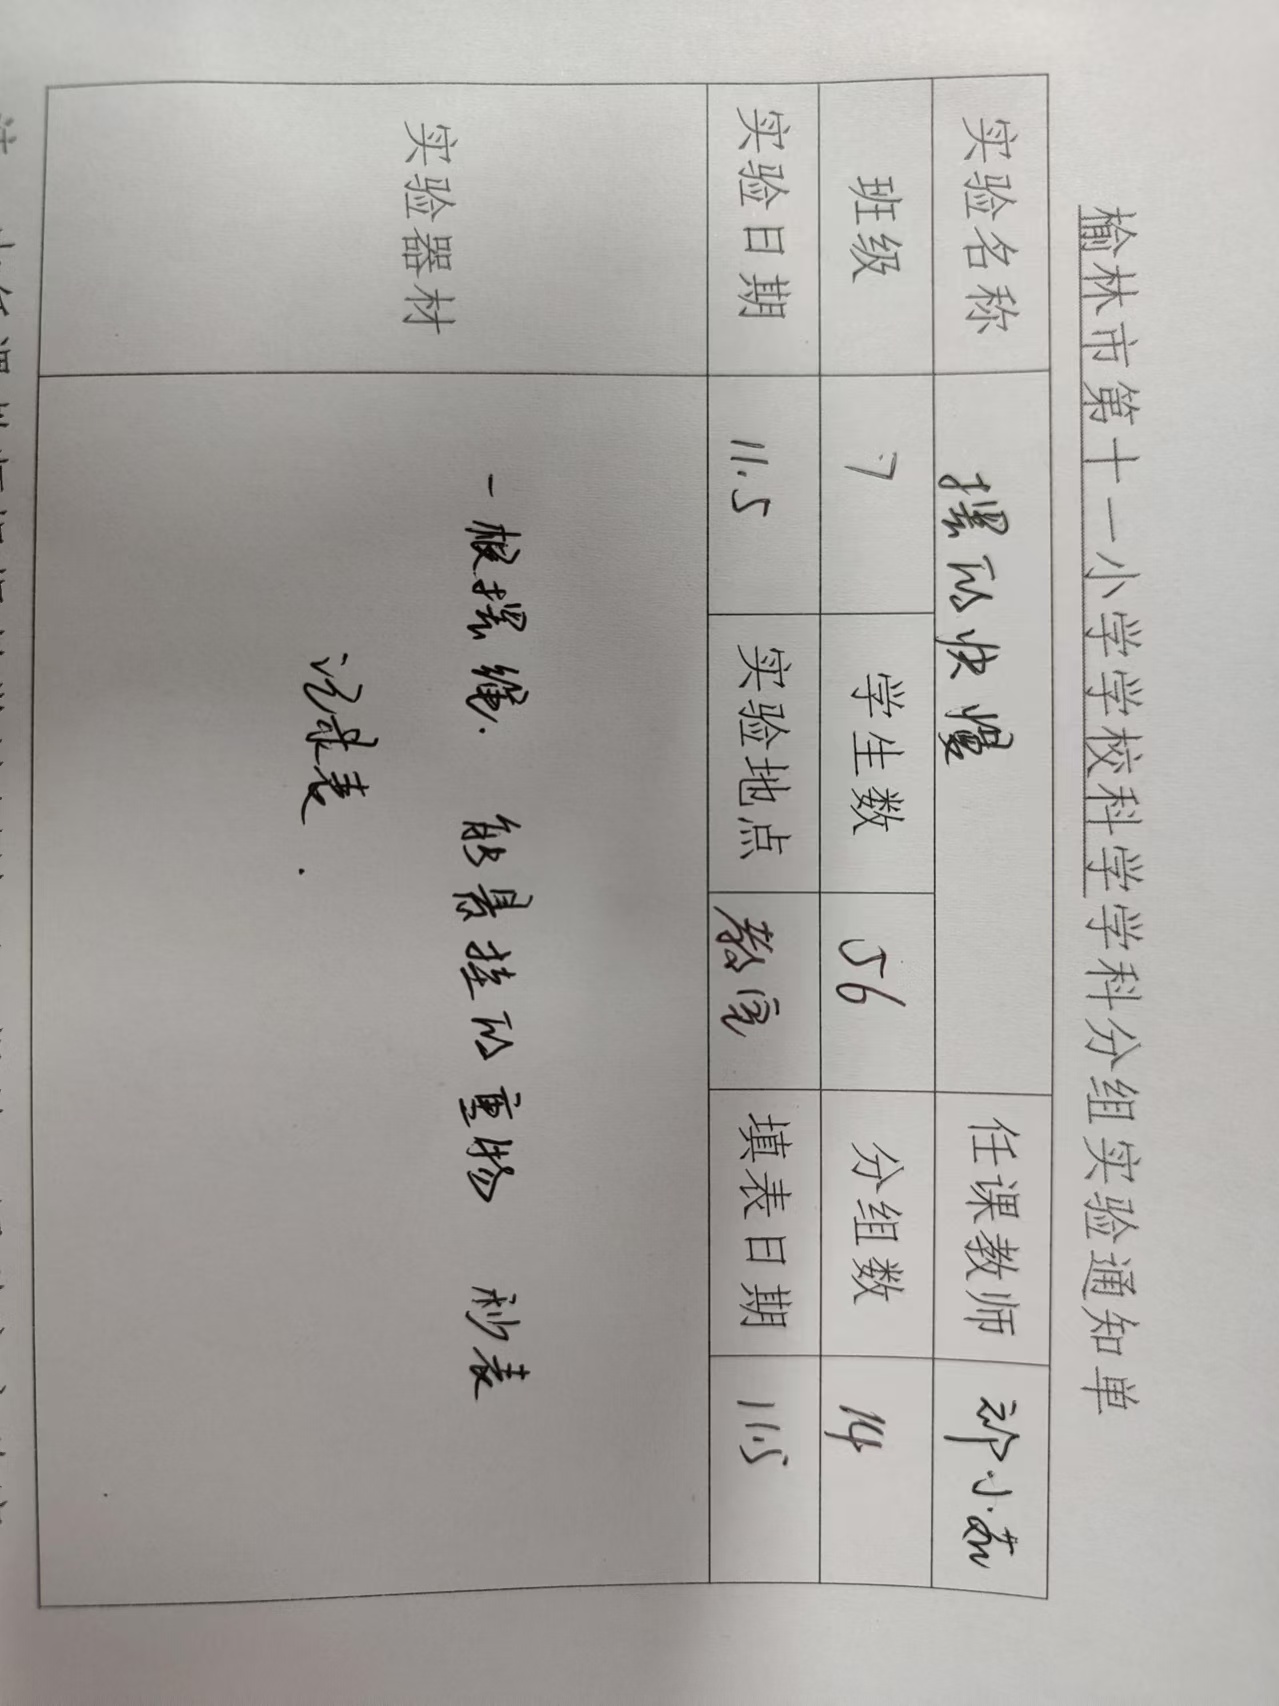 榆林市第十一小学学校科学学科分组实验通知单
实验名称 摆的快慢 任课教师 祁小茹
班级 7 学生数 56 分组数 14
实验日期 11.5 实验地点 教室 填表日期 11.5
实验器材 一根摆绳. 能悬挂的重物 秒表
记录表.